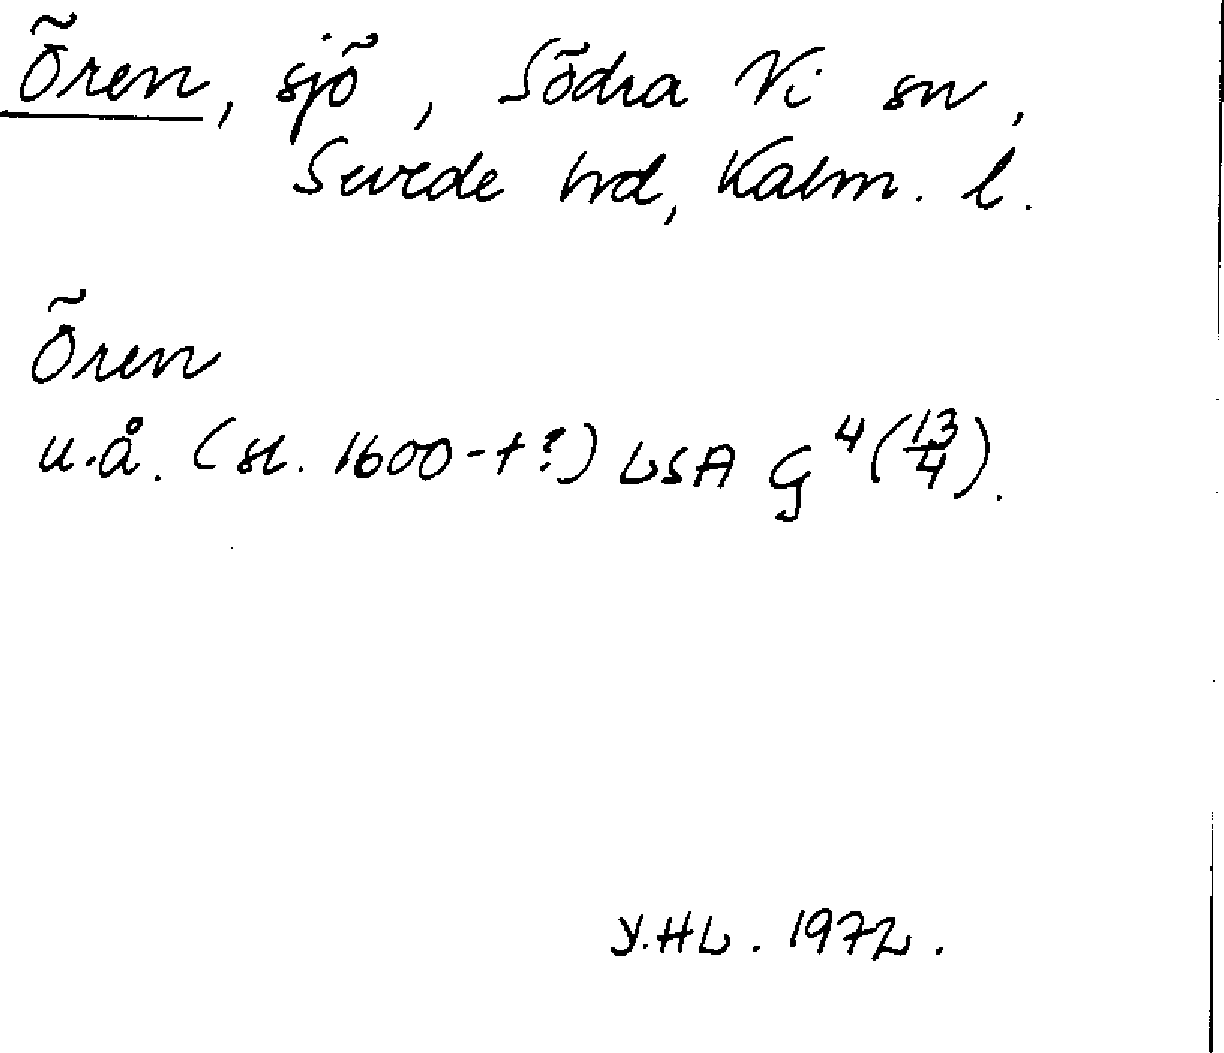 Ören, sjö, Södra Vi sn,
Sevede hd, Kalm. l.
Ören
u.å. (sl. 1600-t?) LSA G⁴(13/4).
Y.HL. 1972.